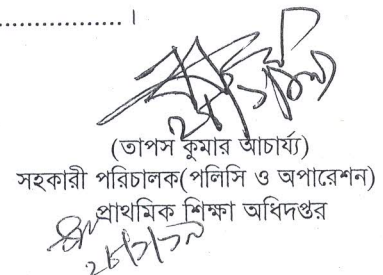 ..................... ।
(তাপস কুমার আচার্য্য)
সহকারী পরিচালক(পলিসি ও অপারেশন)
প্রাথমিক শিক্ষা অধিদপ্তর